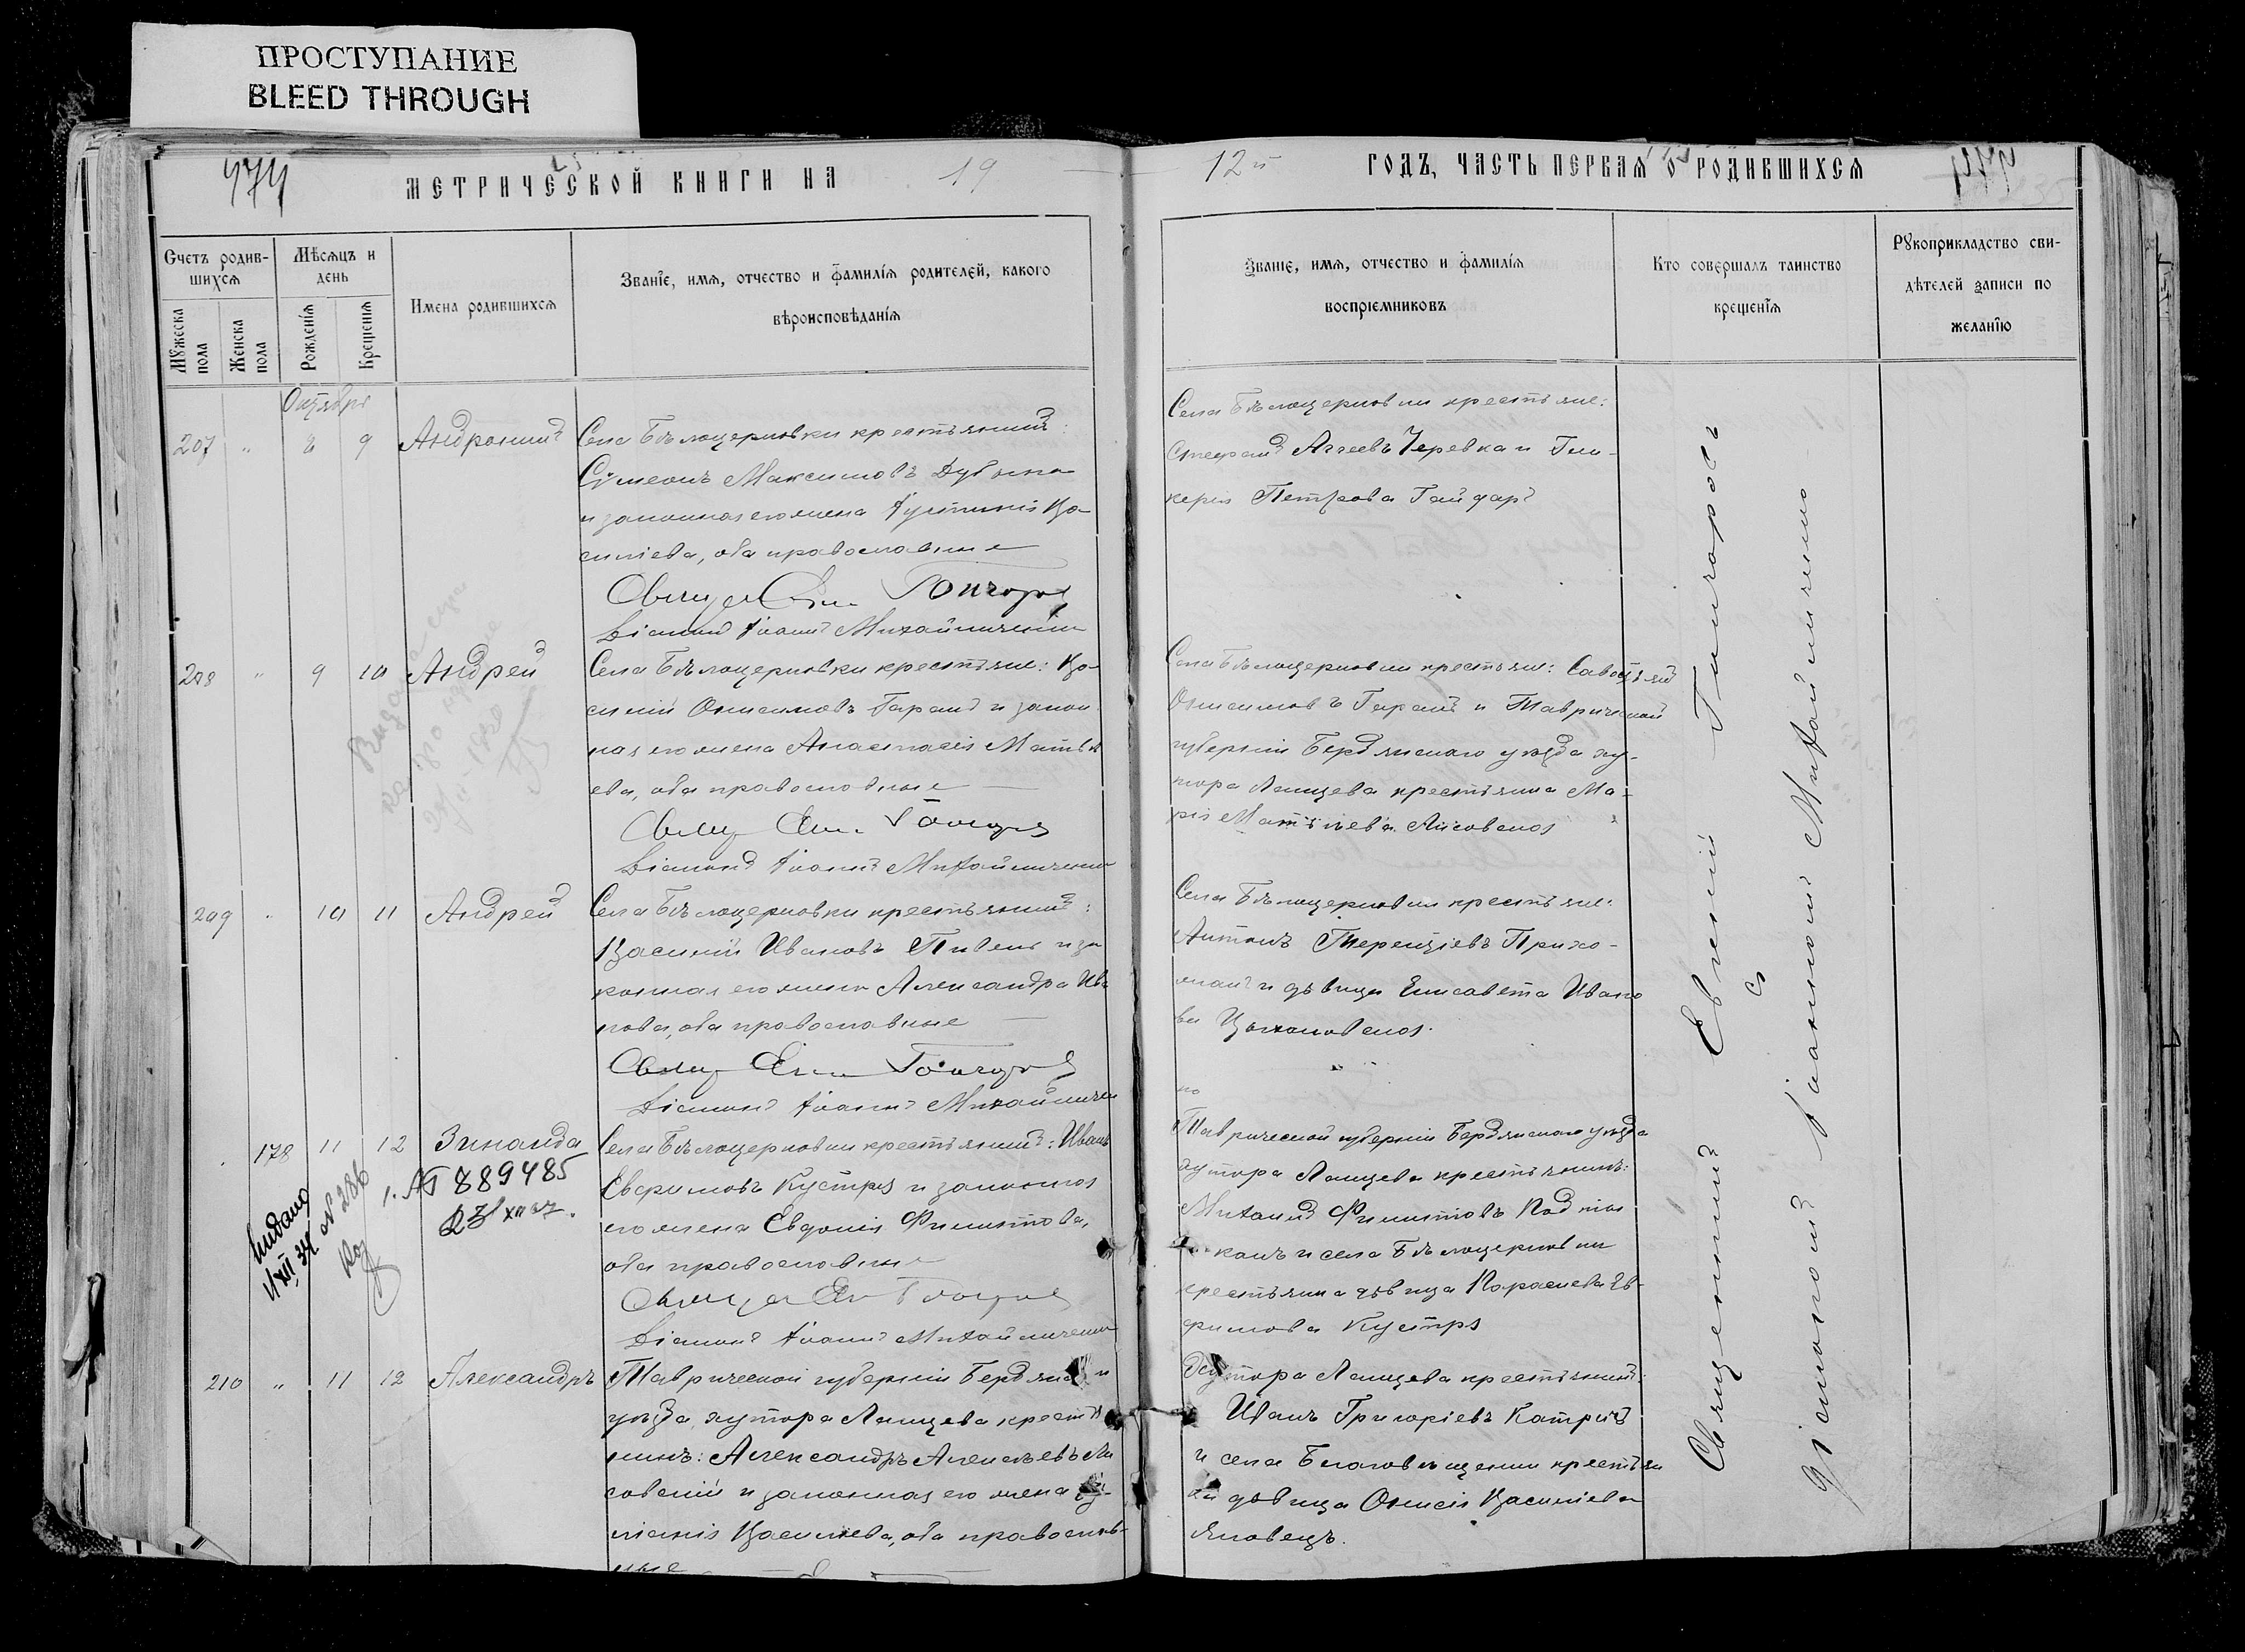 ПРОСТУПАНИЕ
BLEED THROUGH
МЕТРИЧЕСКОЙ КНИГИ НА 19
12й ГОДЪ, ЧАСТЬ ПЕРВАЯ О РОДИВШИХСЯ
Счетъ родив-
шихся
Мужеска пола
Женска пола
Мѣсяцъ и
день
Рожденія
Крещенія
Имена родившихся
Званіе, имя, отчество и фамилія родителей, какого
вѣроисповѣданія
Званіе, имя, отчество и фамилія
воспріемниковъ
Кто совершалъ таинство
крещенія
Рукоприкладство сви-
дѣтелей записи по
желанію
Октябрь
207 " 8 9 Андроникъ
Села Бѣлоцерковки крестьянинъ:
Сѵмеонъ Максимовъ Дубина
и законная его жена Іустинія Ва-
силіева, оба православные
Гончаров
Діаконъ Іоаннъ Михайличенко
Села Бѣлоцерковки крестьяне:
Стефанъ Аггеевъ Черевка и Гли-
керія Петрова Гайдаръ
208 " 9 10 Андрей
Села Бѣлоцерковки крестьяне: Ва-
силій Онисимовъ Таранъ и закон
ная его жена Анастасія Матѳѣ
ева, оба православные
Діаконъ Іоаннъ Михайличенко
Села Бѣлоцерковки крестьяне: Савватій
Онисимовъ Таранъ и Таврической
губерніи Бердянскаго уѣзда ху-
тора Ланцева крестьянка Ма-
рія Матѳѣева Лисовская
209 " 10 11 Андрей
Села Бѣлоцерковки крестьянинъ:
Василій Ивановъ Пивень и за
конная его жена Александра Ива
нова, оба православные
Діаконъ Іоаннъ Михайличенко
Села Бѣлоцерковки крестьяне:
Антонъ Терентіевъ Прихо-
и дѣвица Елисавета Ивано
ва Цыхановская.
178 11 12 Зинаида
1. АП 889485
Видано
№ 286
Села Бѣлоцерковки крестьянинъ: Иванъ
Евфимовъ Кустря и законная
его жена Евдокія Филиппова,
оба православные
Діаконъ Іоаннъ Михайличенко
Таврической губерніи Бердянскаго уѣзда
хутора Ланцева крестьянинъ:
Михаилъ Филипповъ
и села Бѣлоцерковки
крестьянка дѣвица Параскева Ев-
фимова Кустря
210 " 11 12 Александръ
Таврической губерніи Бердянска
уѣзда, хутора Ланцева кресть
янинъ: Александръ Алексѣевъ Ли
совскій и законная его жена Іу-
ліанія Василіева, оба православ-
ные
Хутора Ланцева крестьянинъ:
Иванъ Григоріевъ Катричъ
и села Благовѣщенки крестьян
ка дѣвица Онисія Василіева
Яловецъ.
Священникъ Евгеній Гончаровъ
съ
діакономъ Іоанномъ Михайличенко